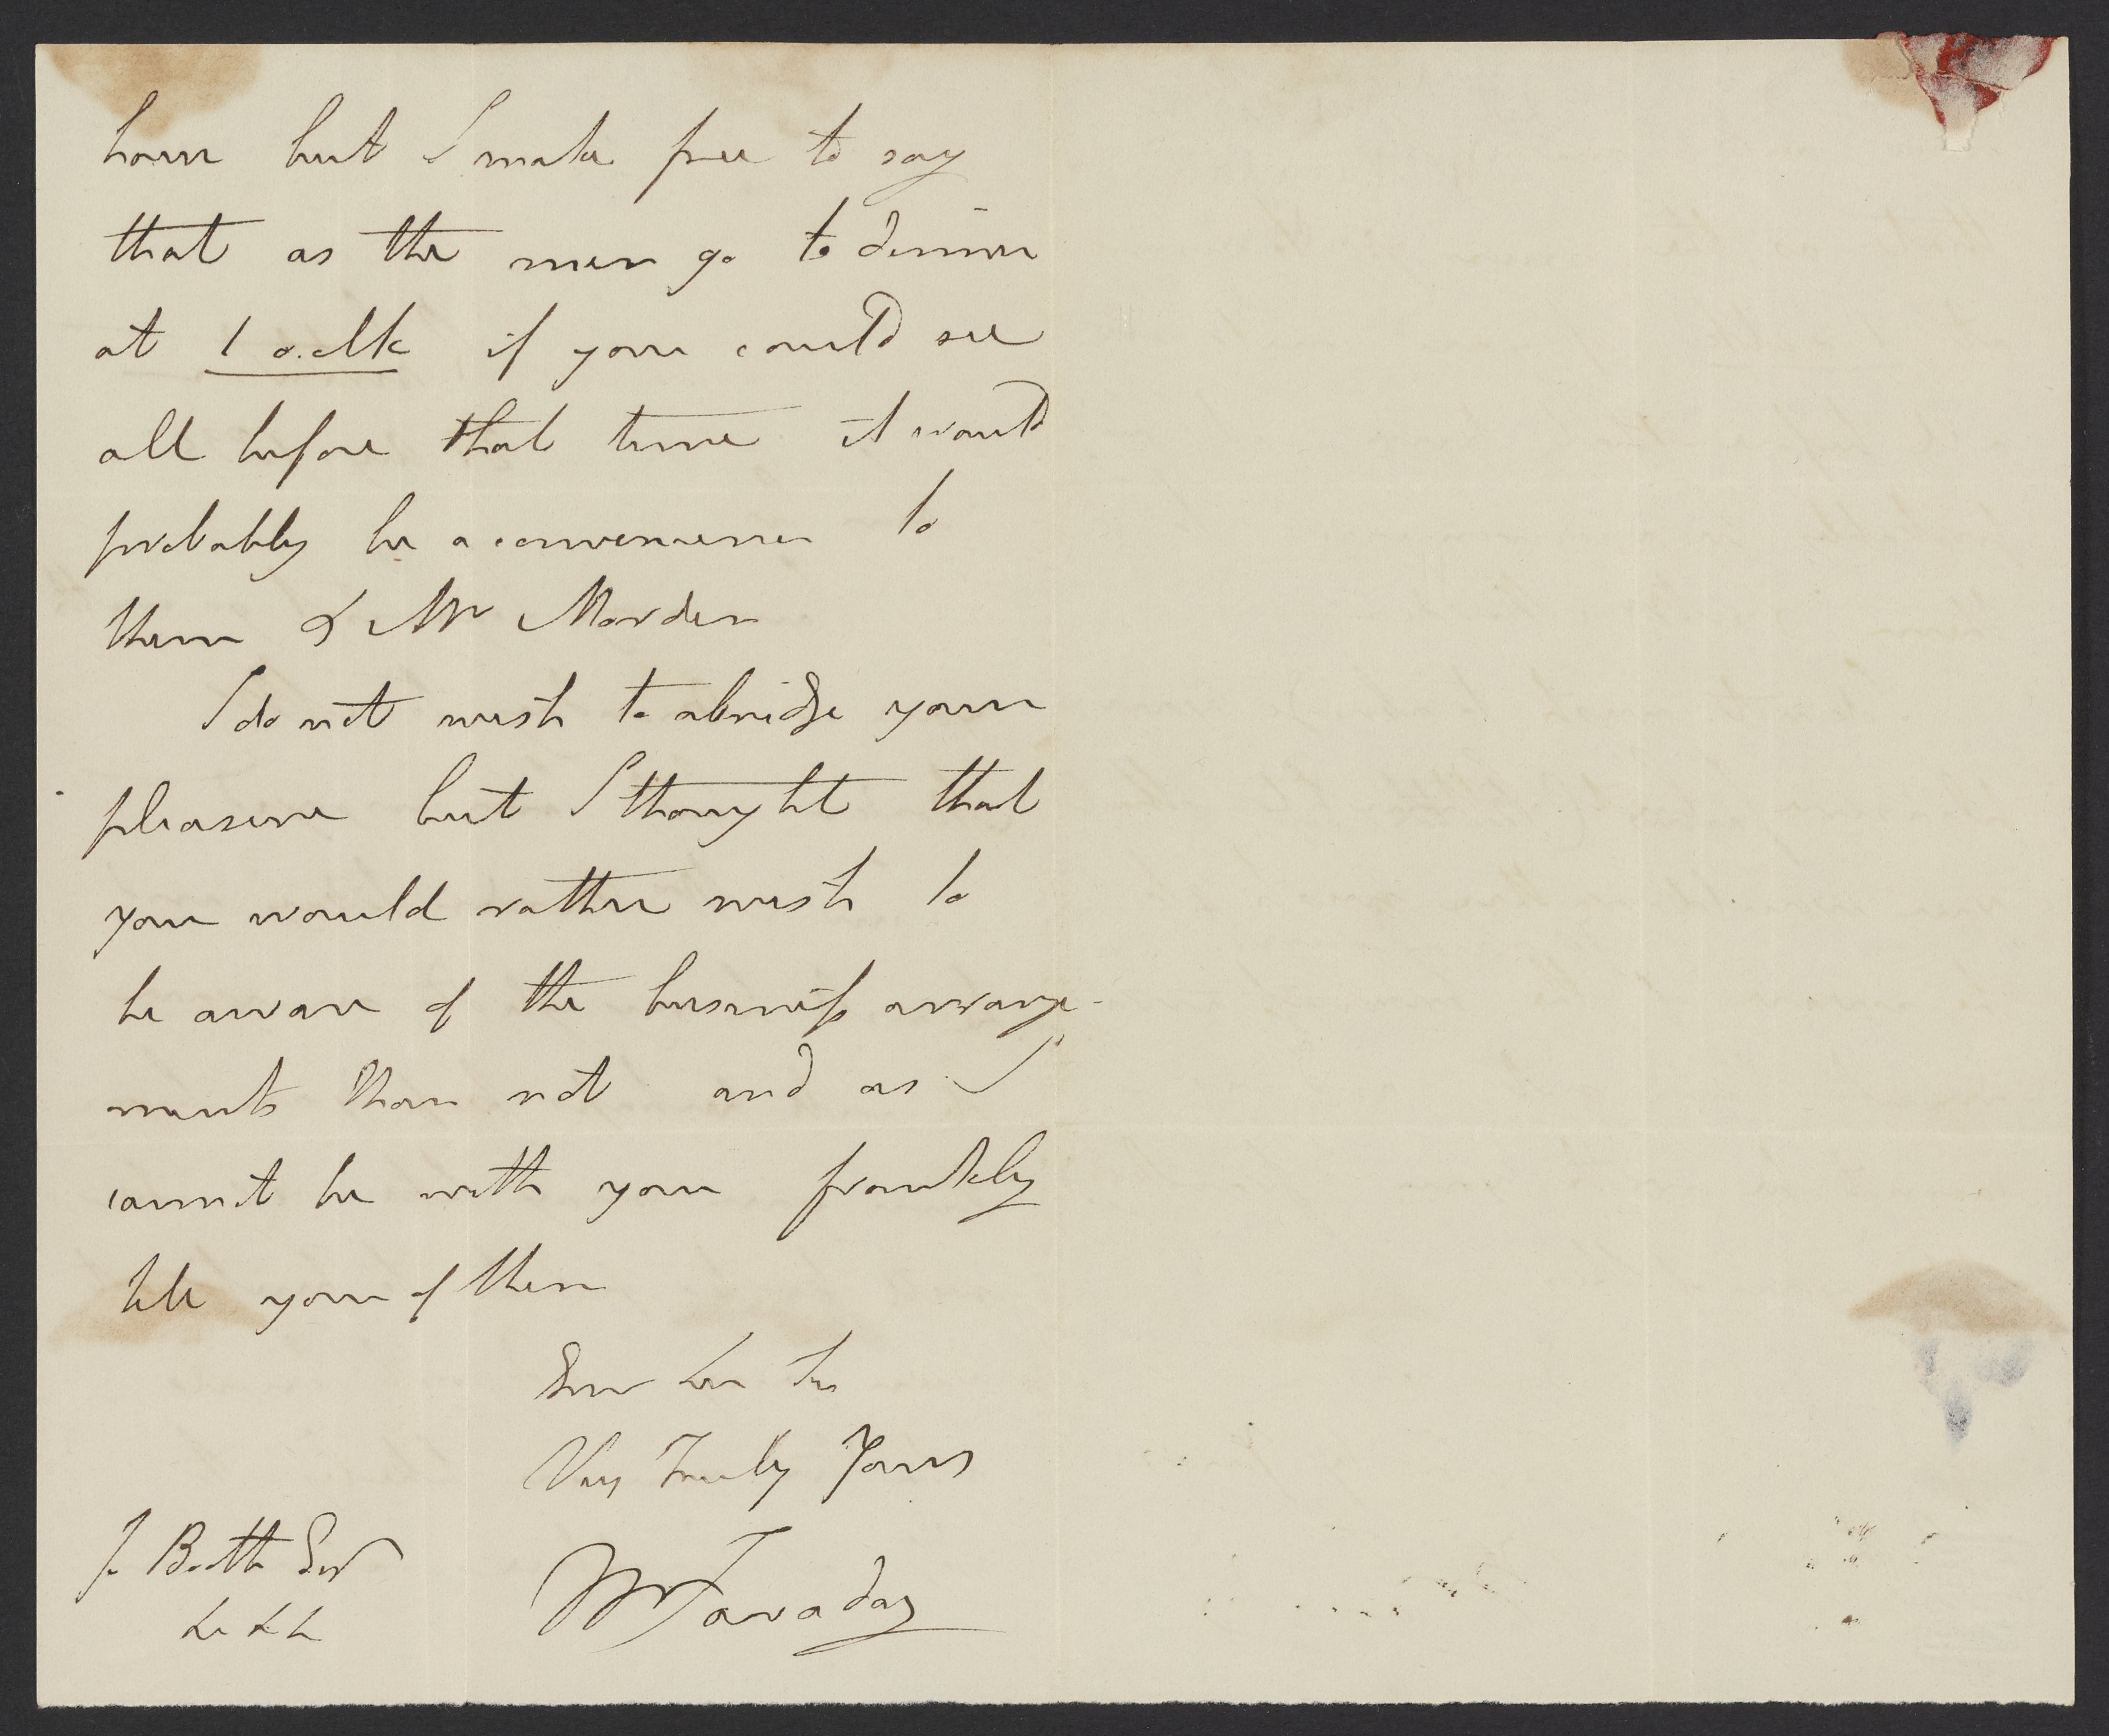 hour but I make free to say
that as the men go to dinner
at 1 o.clk if you could see
all before that time it would
probably be a convenience to
them & Mr Marden
I do not wish to abridge your
pleasure but I thought that
you would rather wish to
be aware of the business arrange-
ments than not and as I
cannot be with you frankly
tell you of them
Ever Dear Sir
Very Truly Yours
M Faraday
J. Booth Esqr
&c &c &c